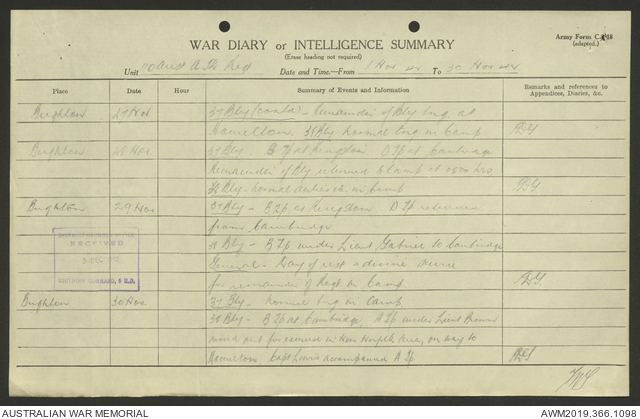 Army Form C.2118
(adapted.)
WAR DIARY or INTELLIGENCE SUMMARY
(Erase heading not required)
Unit Aust A Tk Regt Date and Time.—From 1 Nov 42 To 30 Nov 42
Place Date Hour Summary of Events and Information Remarks and references to
Appendices, Diaries, &c.
Brighton 27 Nov 37 Bty (contd) - Remainder of Bty trg. at
38 Bty normal trg in Camp
Brighton 28 Nov 37 Bty B Tp at Kingston D Tp at Cambridge
Remainder of Bty returned to camp at hrs
38 Bty - normal duties etc in Camp
Brighton 29 Nov 37 Bty - B Tp at Kingston D Tp returned
from Cambridge
38 Bty - B Tp under Lieut to Cambridge
General - Day of rest & divine service
for remainder of Regt in Camp
RECEIVED
Brighton 30 Nov 37 Bty. normal trg in Camp
38 Bty - B Tp at Cambridge, A Tp under Lieut Brown
moved out for exercise in area, on way to
Hamilton Capt Lewis accompanied A Tp
AUSTRALIAN WAR MEMORIAL
AWM2019.366.1098